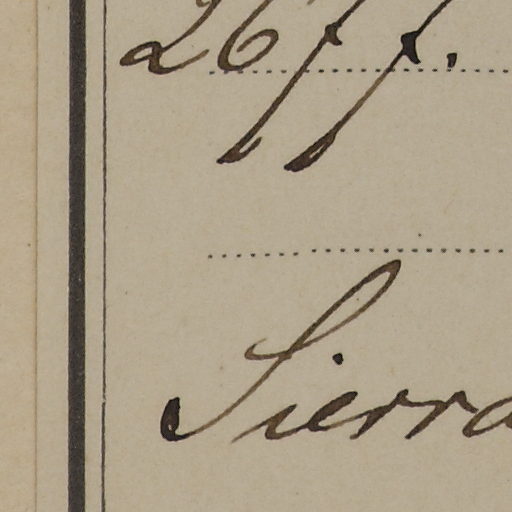 26 ff.
Sierra